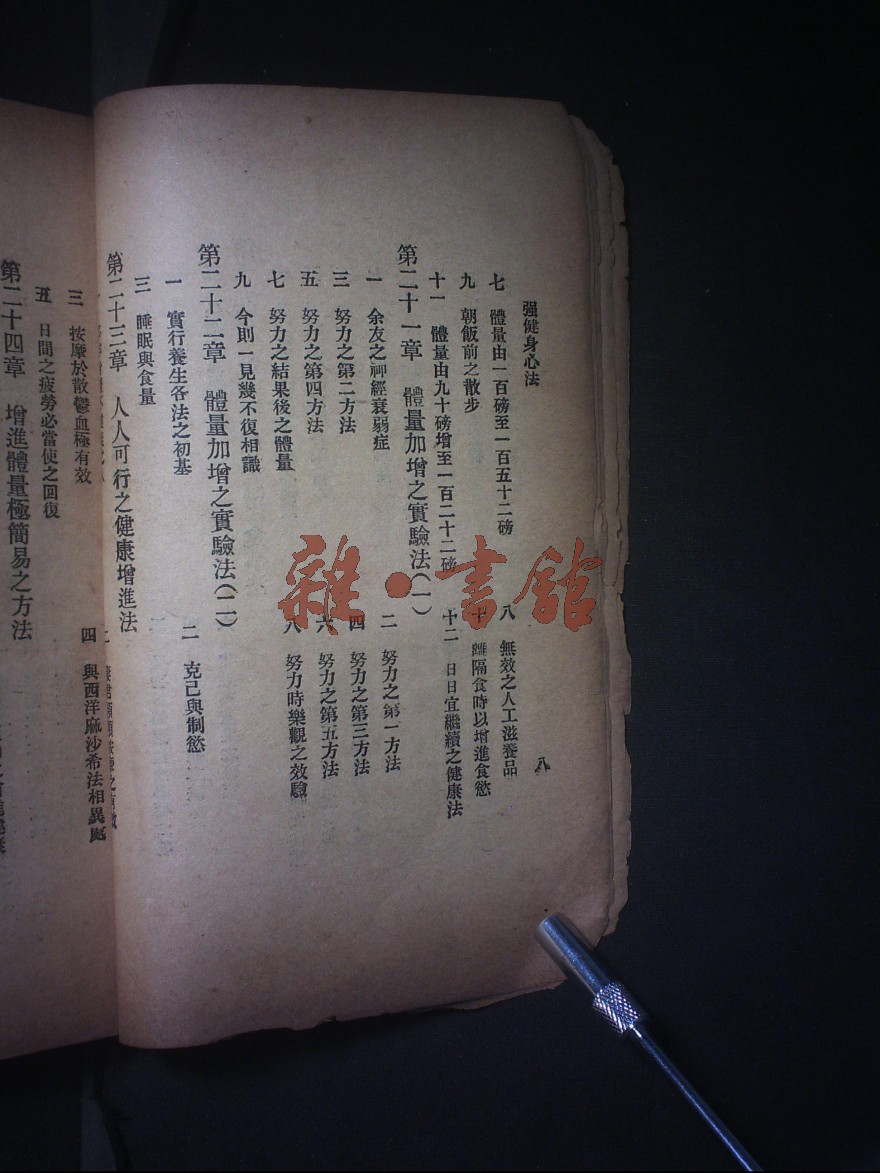 强健身心法
八
七 體量由一百磅至一百五十二磅
八 無效之人工滋養品
九 朝飯前之散步
十 隔食時以增進食慾
十一 體量由九十磅增至一百二十二磅
十二 日日宜繼續之健康法
第二十一章 體量加增之實驗法(一)
一 余友之神經衰弱症
二 努力之第一方法
三 努力之第二方法
四 努力之第三方法
五 努力之第四方法
六 努力之第五方法
七 努力之結果後之體量
八 努力時樂觀之效驗
九 今則一見幾不復相識
第二十二章 體量加增之實驗法(二)
一 實行養生各法之初基
二 克己與制慾
三 睡眠與食量
第二十三章 人人可行之健康增進法
三 按摩於散鬱血極有效
四 與西洋麻沙希法相異處
五 日間之疲勞必當使之回復
第二十四章 增進體量極簡易之方法
雜·書館